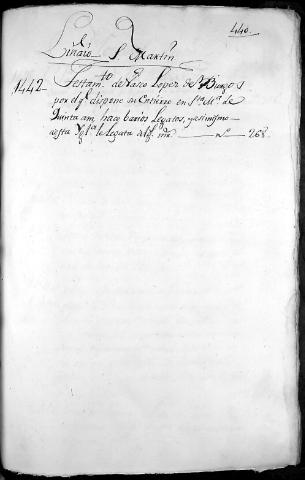 440.
Linaró S. Martín
1442 Testam.to de Lope Lopez de Burgos
por el q.e dispone su Entierro en S.ta M.a de
Quintana, hace barios Legatos, y asimismo
a esta Ygl.a le legata n.o 268